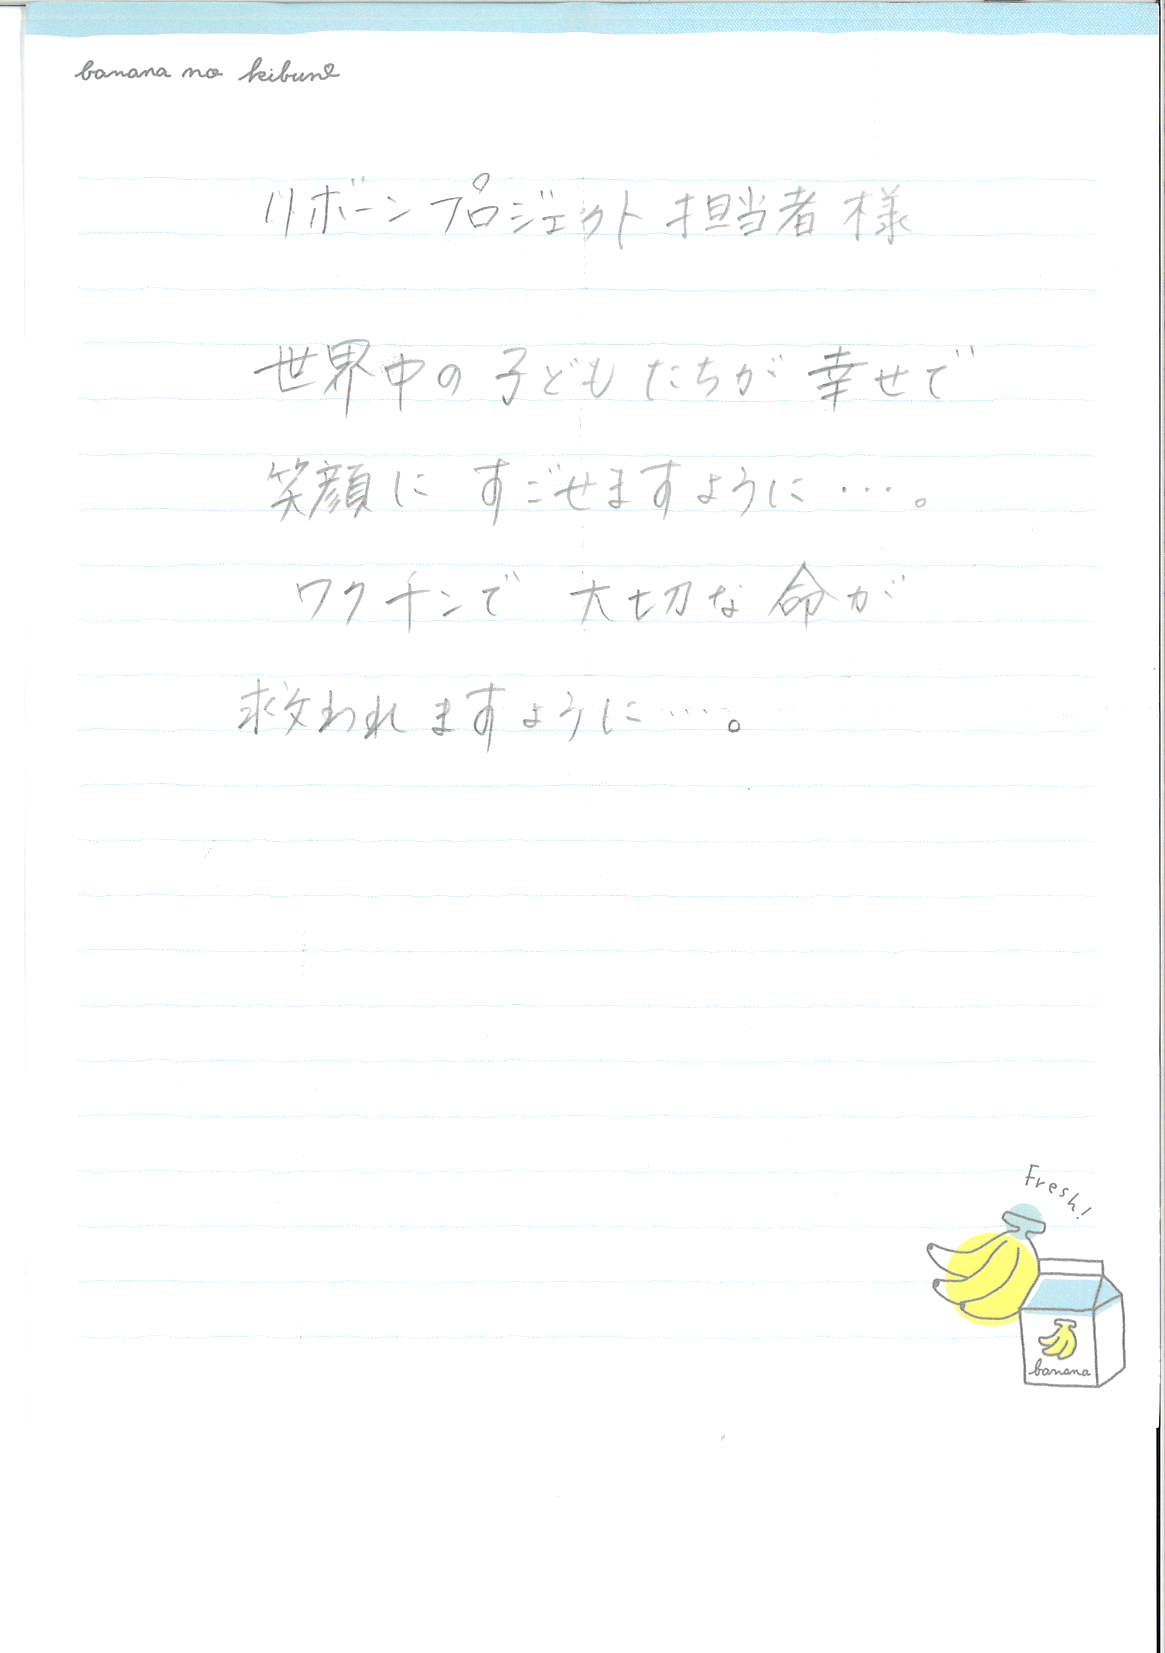 banana no kibun
リボーンプロジェクト 担当者 様
世界中の 子どもたちが 幸せで
笑顔に すごせますように…。
ワクチンで 大切な 命が
救われますように…。
Fresh!
banana